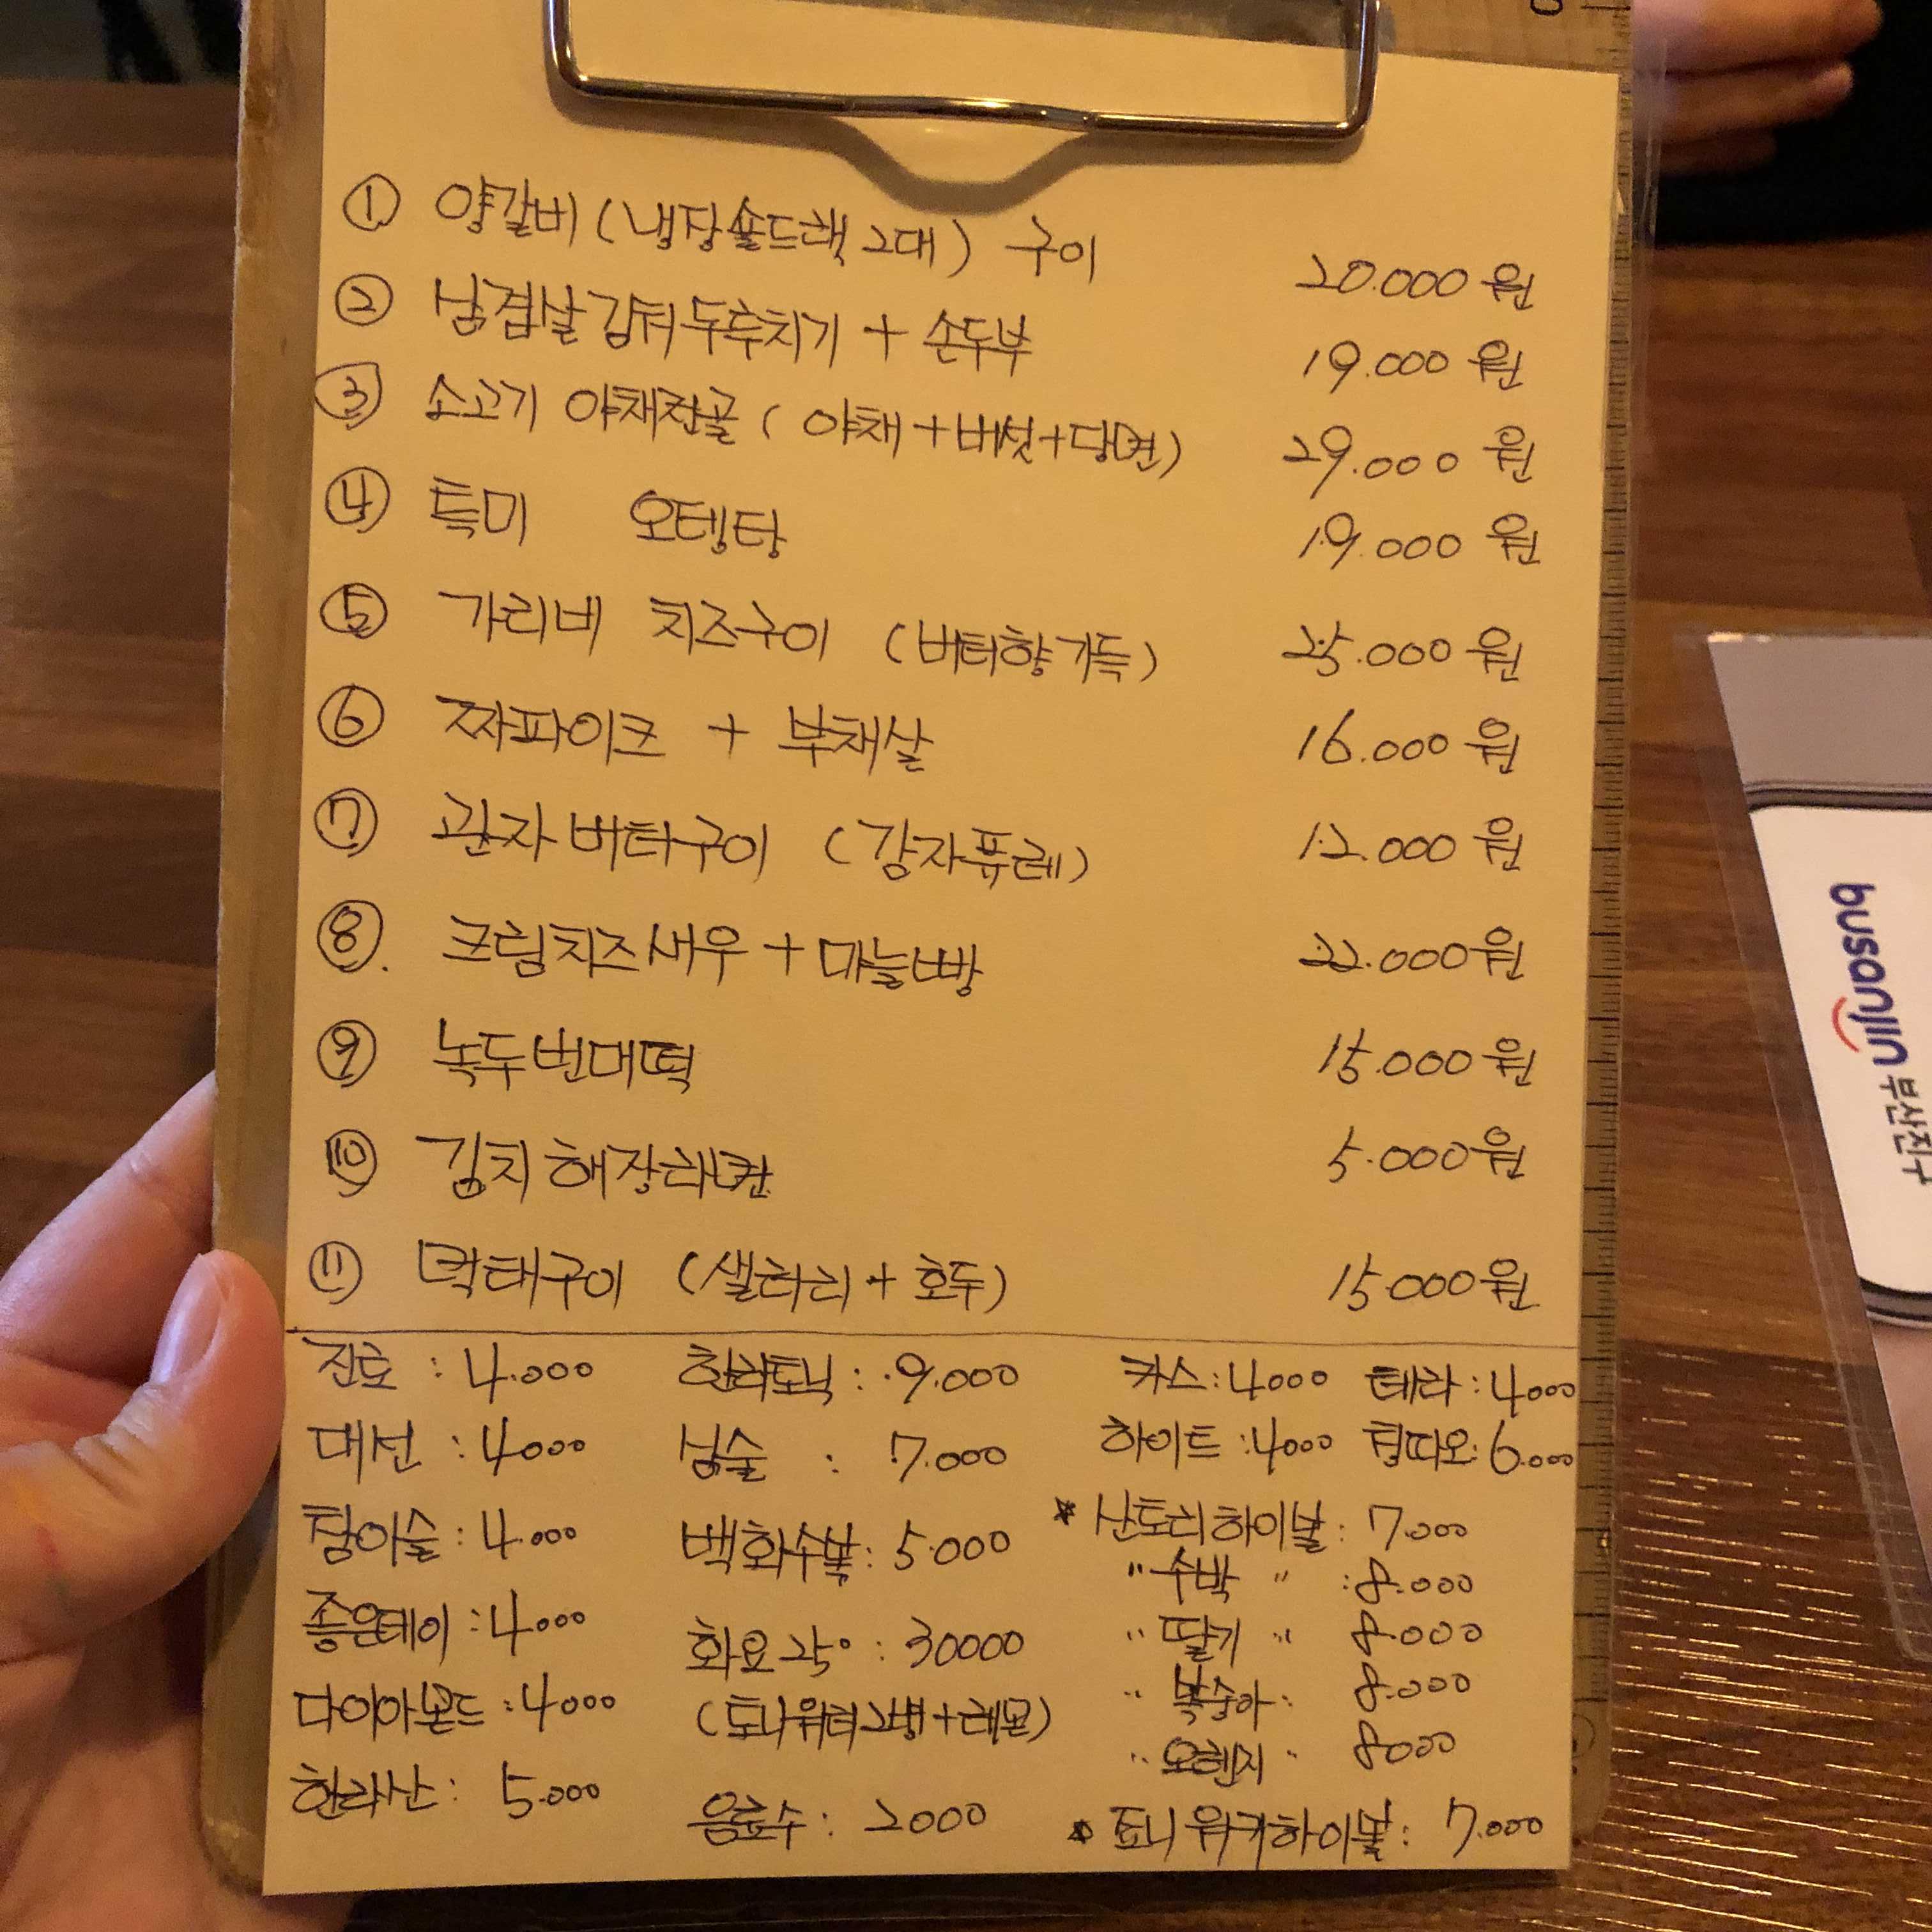 ① 양갈비 (냉장숄드랙 2대) 구이 20.000원
② 삼겹살김치두루치기 + 손두부 19.000원
③ 소고기 야채전골 (야채+버섯+당면) 29.000원
④ 특미 오뎅탕 19.000원
⑤ 가리비 치즈구이 (버터향가득) 25.000원
⑥ 짜파이크 + 부채살 16.000원
⑦ 관자버터구이 (감자퓨레) 12.000원
⑧. 크림치즈새우 + 마늘빵 22.000원
⑨ 녹두빈대떡 15.000원
⑩ 김치해장라면 5.000원
⑪ 먹태구이 (샐러리 + 호두) 15.000원
진로 : 4.000 한라토닉 : 9.000 카스 : 4000 테라 : 4000
대선 : 4000 심술 : 7.000 하이트 : 4000 칭따오 : 6.000
참이슬 : 4.000 백화수복 : 5.000 * 산토리하이볼 : 7.000
" 수박 " : 8.000
좋은데이 : 4000 화요25° : 30000 " 딸기 " 8.000
다이아몬드 : 4000 (토니워터2병+레몬) " 복숭아 : 8.000
" 오렌지 " 8000
한라산 : 5.000 음료수 : 2000 * 죠니워커하이볼 : 7.000
busanjin 부산진구